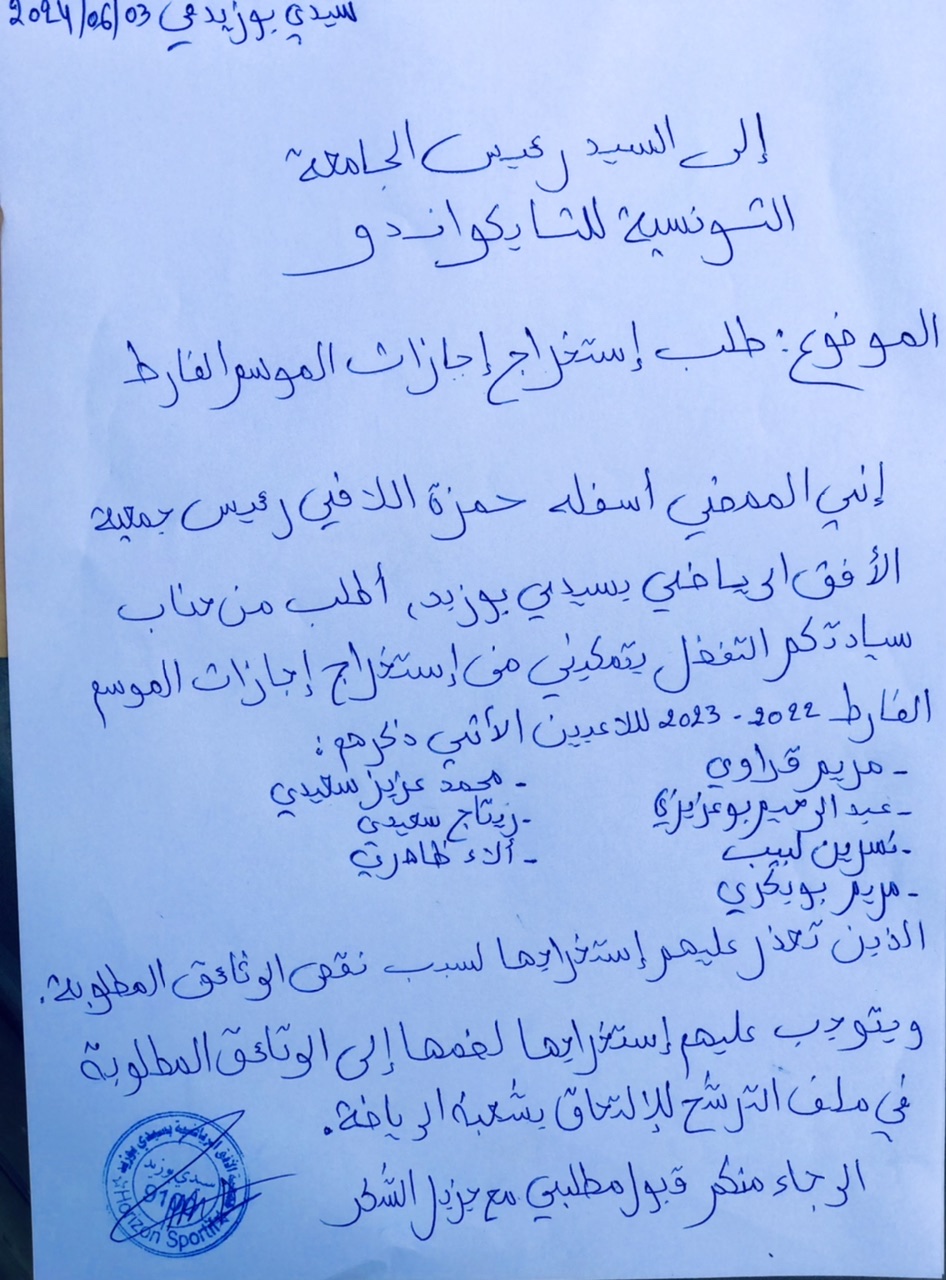 سيدي بوزيد في 2024/06/03
إلى السيد رئيس الجامعة
التونسية للتايكواندو
الموضوع: طلب إستخراج إجازات الموسم الفارط
إنني الممضي أسفله حمزة اللافي رئيس جمعية
الأفق الرياضي بسيدي بوزيد، أطلب من جناب
سيادتكم التفضل بتمكيني من إستخراج إجازات الموسم
الفارط 2022 - 2023 للاعبين الأتي ذكرهم:
- مريم قراوي - محمد عزيز سعيدي
- عبد الرحيم بوعزيزي - زيتاج سعيدي
- نسرين لبيب - ألاء ظاهري
- مريم بوبكري
الذين تعذر عليهم إستخراجها لسبب نقص الوثائق المطلوبة.
ويتوجب عليهم إستخراجها لضمها إلى الوثائق المطلوبة
في ملف الترشح للإلتحاق بشعبة الرياضة.
الرجاء منكم قبول مطلبي مع جزيل الشكر
سيدي بوزيد
9100
Horizon Sportif